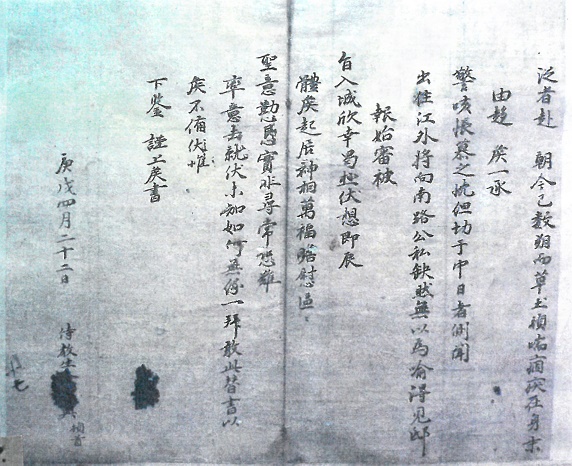 泛者赴 朝今已數朔而草土頑喘痼疾在身末
由趍 候一承
警咳悵慕之忱但切于中日者側聞
出住江外將向南路公私缺然無以爲喩得見邸
報始審被
旨入城欣幸曷極伏想卽辰
體候起居神相萬福貽慰區〻
聖意勤懇實非尋常恐難
率意去就伏未知如何無便一拜敢此替書以
候不備伏惟
下鑒 謹上候書
庚戌四月二十二日 侍敎生 頓首